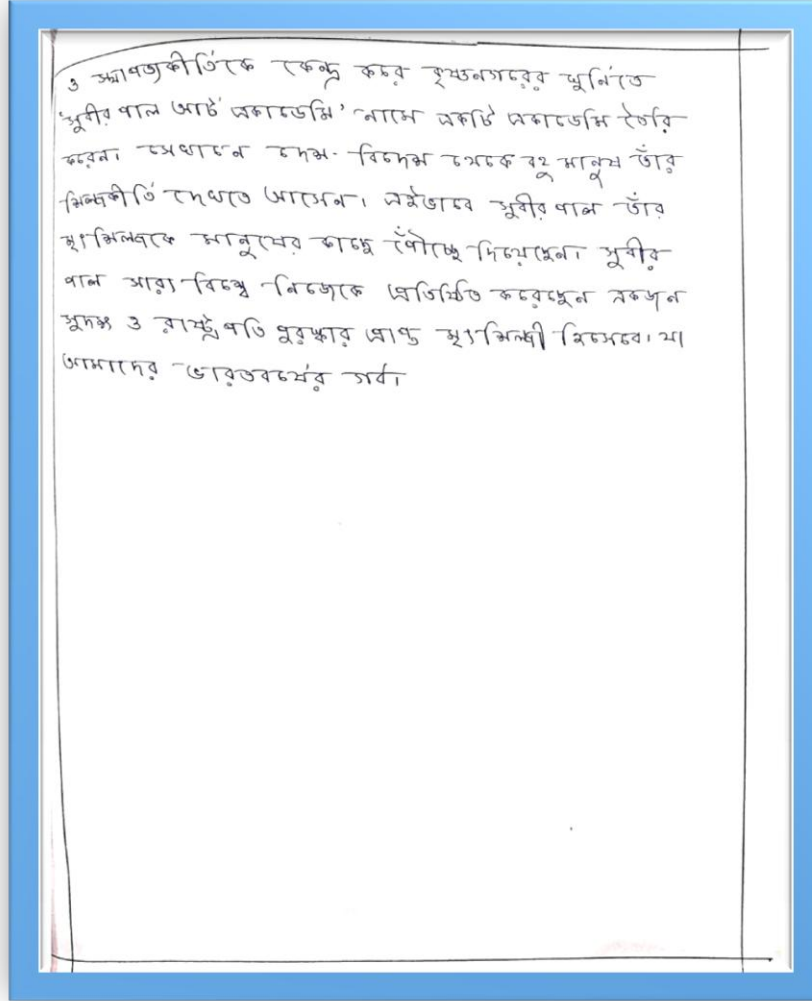 ও স্থাপত্যকীর্তিকে কেন্দ্র করে কৃষ্ণনগরের ঘূর্নিতে
'সুবীর পাল আর্ট একাডেমি' নামে একটি একাডেমি তৈরি
করেন। সেখানে দেশ-বিদেশ থেকে বহু মানুষ তাঁর
শিল্পকীর্তি দেখতে আসেন। এইভাবে সুবীর পাল তাঁর
মৃৎশিল্পকে মানুষের কাছে পৌঁচ্ছে দিয়েছেন। সুবীর
পাল সারা বিশ্বে নিজেকে প্রতিষ্ঠিত করেছেন একজন
সুদক্ষ ও রাষ্ট্রপতি পুরস্কার প্রাপ্ত মৃৎশিল্পী হিসেবে। যা
আমাদের ভারতবর্ষের গর্ব।